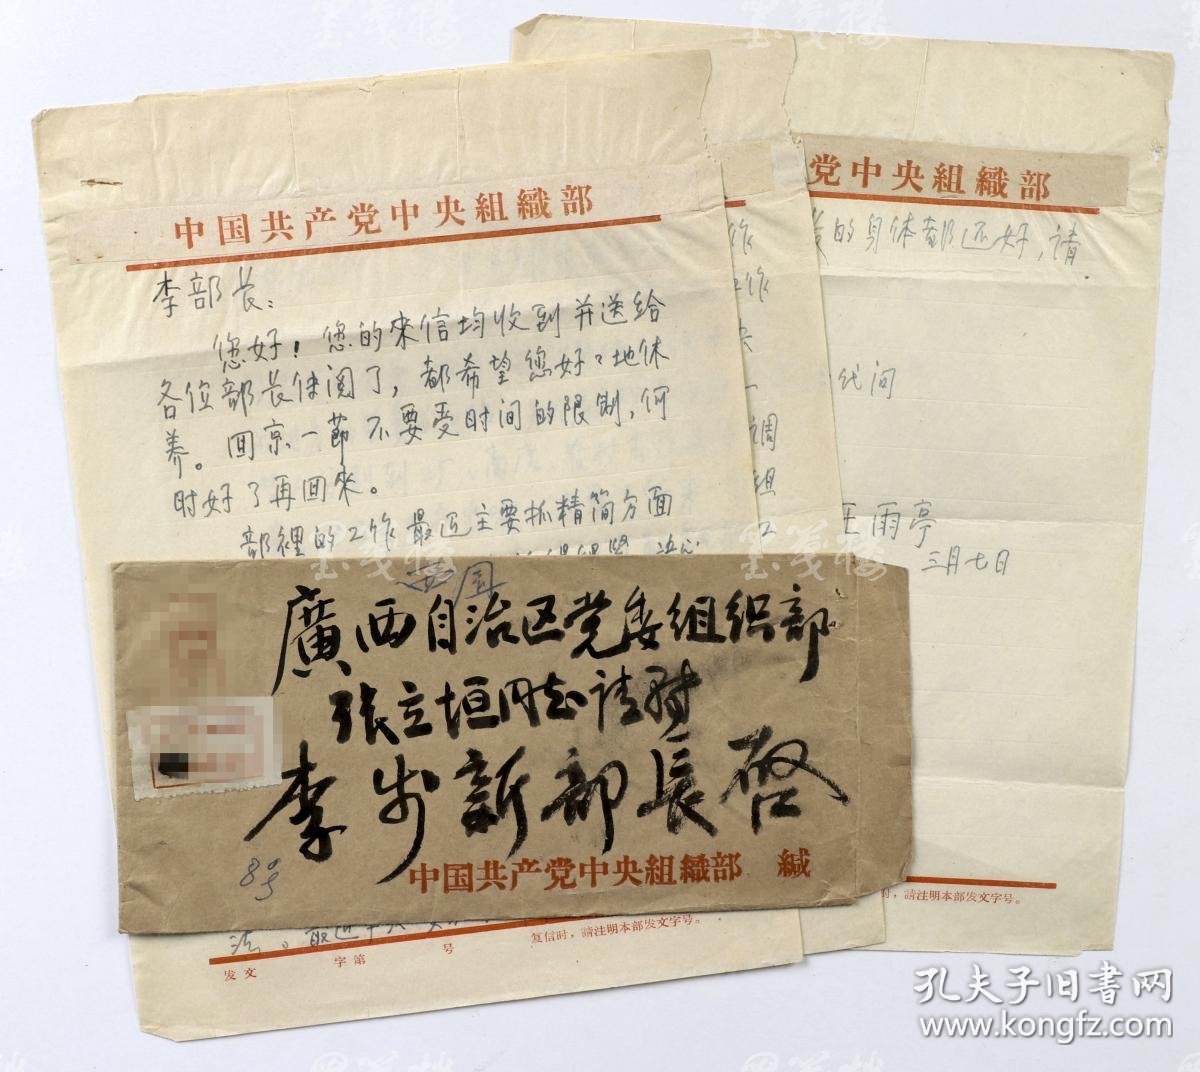 中国共产党中央組織部
李部长：
您好！您的來信均收到并送给
各位部长传阅了，都希望您好々地休
养。回京一節不要受时间的限制，何
时好了再回來。
部裡的工作最近主要抓精简方面
法。最近
发文 字第 号 复信时，請注明本部发文字号。
作
工作
央
一
调
组
工
党中央組織部
的身体都还好，请
代问
王雨亭
三月七日
时，請注明本部发文字号。
廣西自治区党委组织部
张立垣同志请转
李步新部長啓
8号
中国共产党中央組織部 緘
孔夫子旧書网
www.kongfz.com
墨笺楼